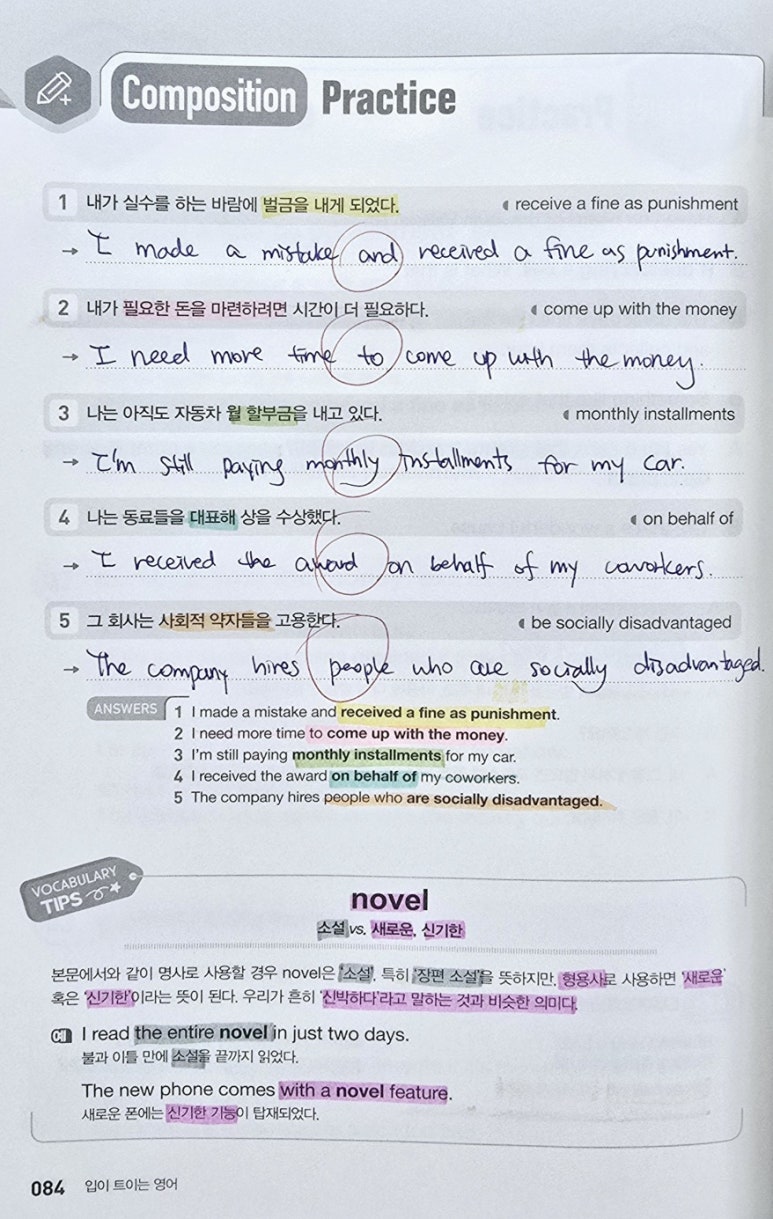 Composition Practice
1 내가 실수를 하는 바람에 벌금을 내게 되었다. receive a fine as punishment
→ I made a mistake and received a fine as punishment.
2 내가 필요한 돈을 마련하려면 시간이 더 필요하다. come up with the money
→ I need more time to come up with the money.
3 나는 아직도 자동차 월 할부금을 내고 있다. monthly installments
→ I'm still paying monthly installments for my car.
4 나는 동료들을 대표해 상을 수상했다. on behalf of
→ I received the award on behalf of my coworkers.
5 그 회사는 사회적 약자들을 고용한다. be socially disadvantaged
→ The company hires people who are socially disadvantaged.
ANSWERS 1 I made a mistake and received a fine as punishment.
2 I need more time to come up with the money.
3 I'm still paying monthly installments for my car.
4 I received the award on behalf of my coworkers.
5 The company hires people who are socially disadvantaged.
VOCABULARY
TIPS
novel
소설 vs. 새로운, 신기한
본문에서와 같이 명사로 사용할 경우 novel은 '소설', 특히 '장편 소설'을 뜻하지만, 형용사로 사용하면 '새로운'
혹은 '신기한'이라는 뜻이 된다. 우리가 흔히 '신박하다'라고 말하는 것과 비슷한 의미다.
예 I read the entire novel in just two days.
불과 이틀 만에 소설을 끝까지 읽었다.
The new phone comes with a novel feature.
새로운 폰에는 신기한 기능이 탑재되었다.
084 입이 트이는 영어